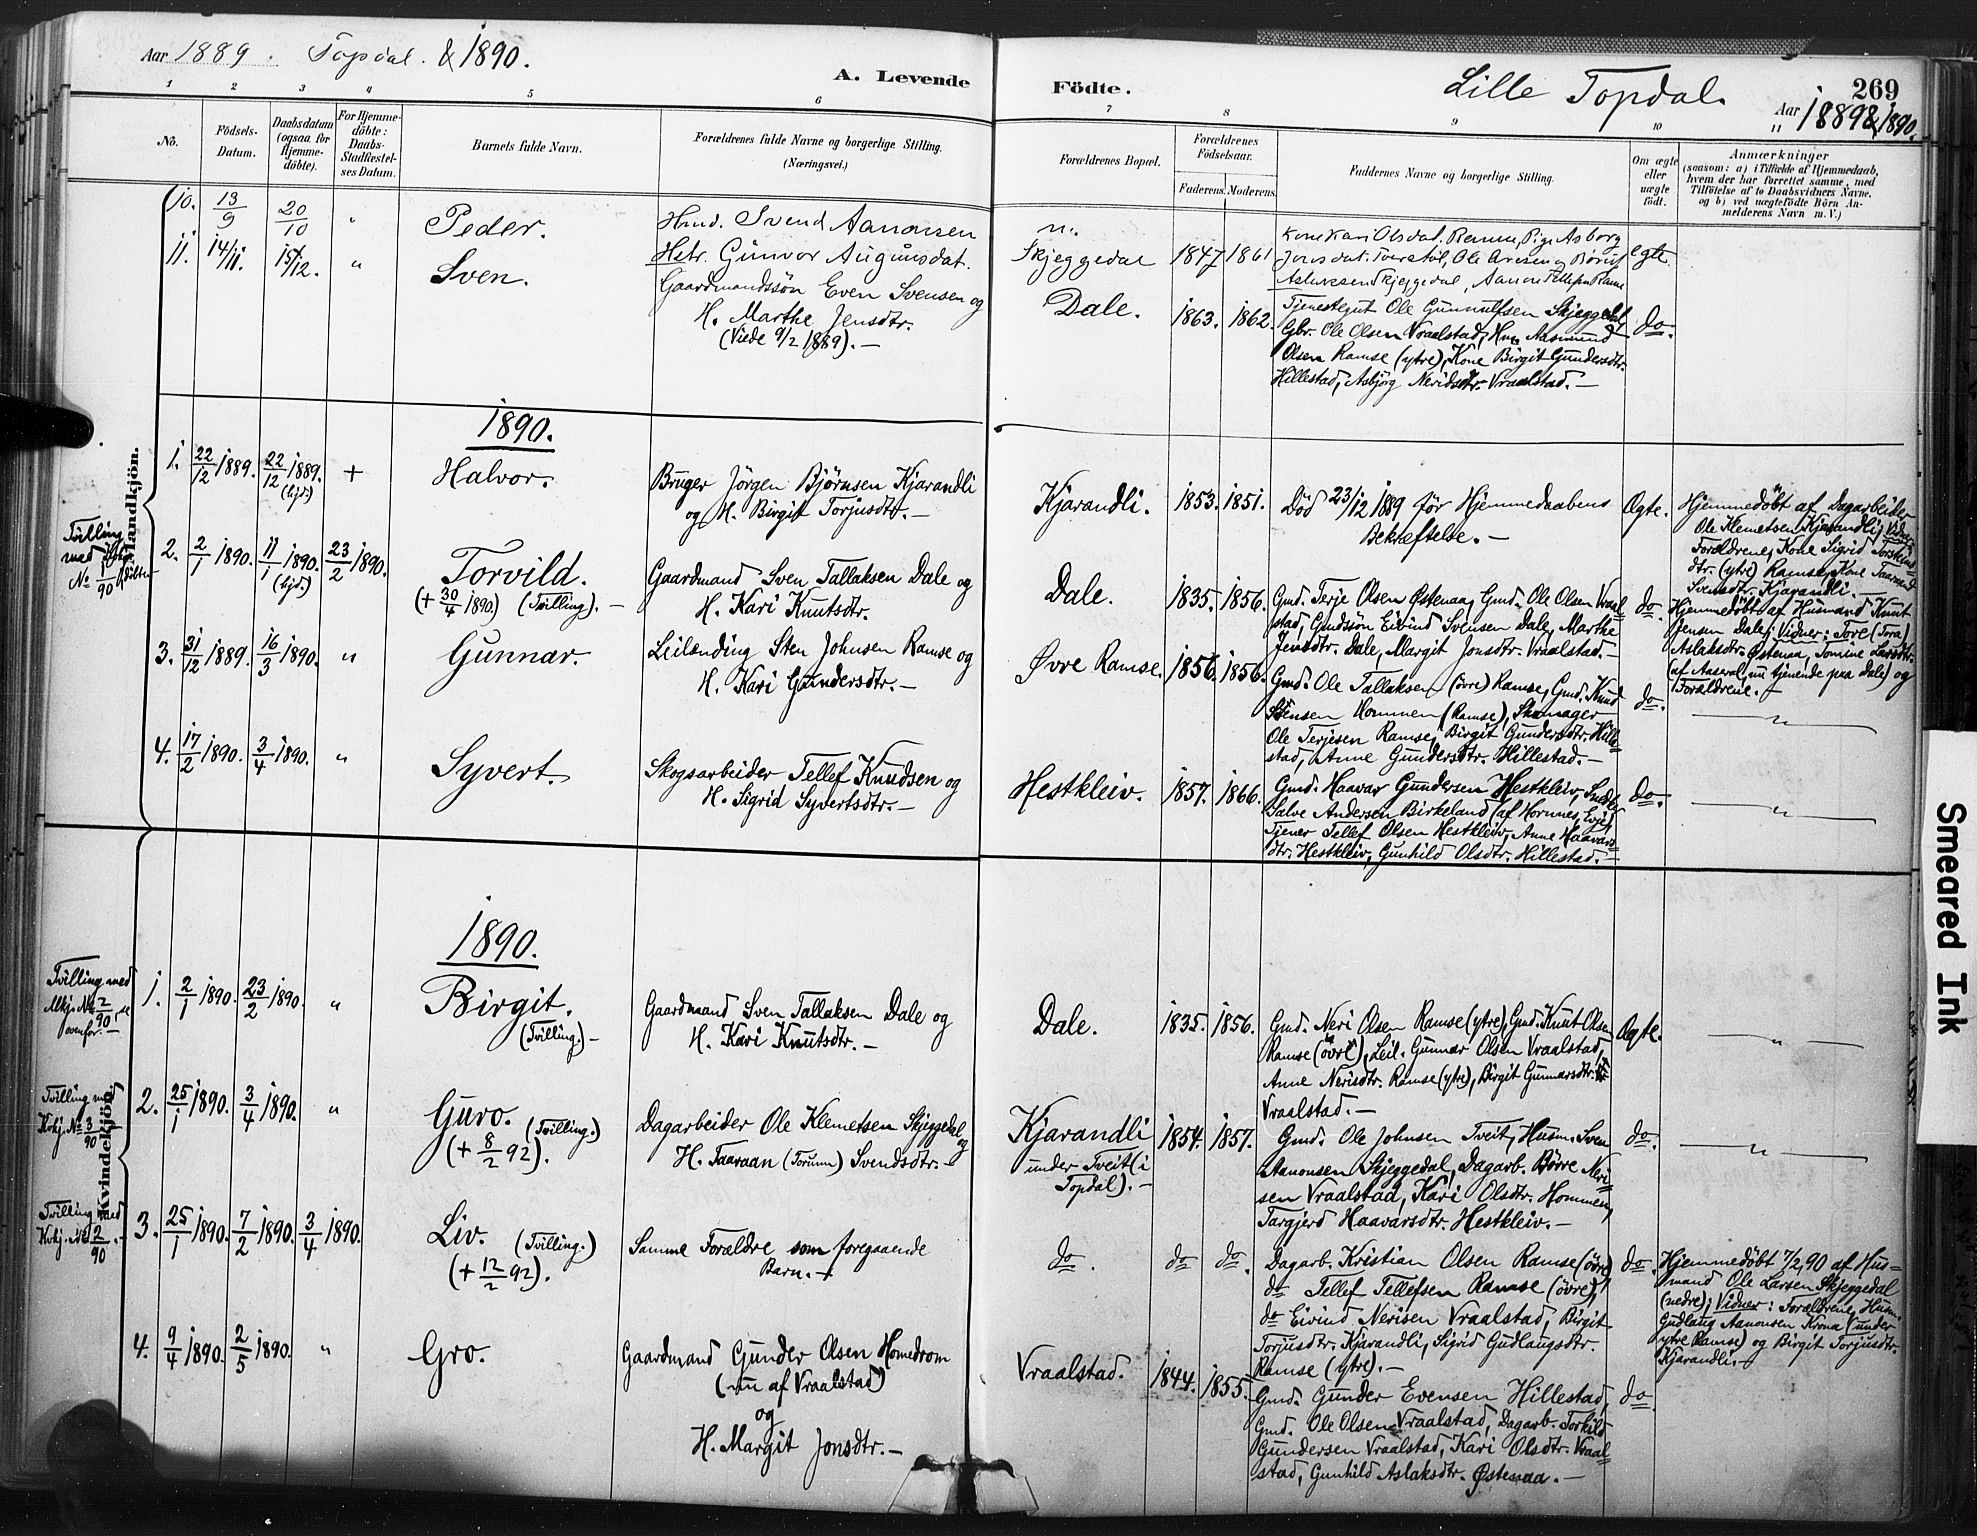 Aar 1889. Topdal. & 1890.
A. Levende
Födte.
Lille Topdal.
269
Aar 1889 & 1890.
1 2 3 4 5 6 7 8 9 10 11
No.
Födsels-
Datum.
Daabsdatum
(ogsaa for
Hjemme-
döbte).
For Hjemme-
döbte:
Daabs-
Stadfæstel-
ses Datum.
Barnets fulde Navn.
Forældrenes fulde Navne og borgerlige Stilling.
(Næringsvei.)
Forældrenes Bopæl.
Forældrenes
Födselsaar.
Faderens. Moderens.
Faddernes Navne og borgerlige Stilling.
Om ægte
eller
uægte
født.
Anmærkninger
(saasom: a) i Tilfælde af Hjemmedaab,
hvem der har forrettet samme, med
Tilföielse af to Daabsvidners Navne,
og b) ved uægtefödte Börn An-
melderens Navn m. V.)
10. 13/9 20/10 "
Peder.
Hmd. Svend Aanonsen
Hstr. Gunvor Augunsdat.
Skjeggedal 1847 1861
Kone Kari Olsdat. Ramse, Pige Asborg
Jonsdat. Ole
Skjeggedal, Aanon Tellefsen Ramse
egte.
11. 14/11. 15/12. "
Sven.
Gaardmandssön Even Svensen og
H. Marthe Jensdtr.
(Viede 9/2 1889). —
Dale. 1863. 1862.
Tjenestegut Ole Gunnulfsen Skjeggedal,
Gbr. Ole Olsen Vraalstad, Hm. Aasmund
Olsen Ramse (ytre), Kone Birgit Gundersdtr.
Hillestad, Asbjörg Nerisdtr. Vraalstad. —
do.
Mandkjön.
1890.
1. 22/12 1889. 22/12 1889. (hjd.) +
Halvor.
Bruger Jörgen Björnsen Kjarandli
og H. Birgit Torjusdtr. —
Kjarandli. 1853. 1851.
Död 23/12 1889 för Hjemmedaabens
Bekræftelse. —
Ægte.
Hjemmedöbt af Dagarbeider
Ole Klemetsen Kjarandli; Vidner:
Forældrene, Kone Sigrid
dtr. (ytre) Ramse, Kone Taaraand
Svensdtr. Kjarandli. —
Tvilling
med
No /90
2. 2/1 1890. 11/1 1890. (hjd.) 23/2 1890.
Torvild.
(+ 30/4 1890) (Tvilling). —
Gaardmand Sven Tallaksen Dale og
H. Kari Knutsdtr.
Dale. 1835. 1856.
Gmd. Terje Olsen Østenaa, Gmd. Ole Olsen Vraal-
stad, Gmdssön Eivind Svensen Dale, Marthe
Jensdtr. Dale, Margit Jonsdtr. Vraalstad. —
do.
Hjemmedöbt af Husmand Knut
Jensen Dale; Vidner: Tore (Tora)
Aslaksdtr. Østenaa, Tomine Larsdtr.
(af Aaseral, nu tjenende paa Dale) og
Forældrene. —
3. 31/12 1889. 16/3 1890. "
Gunnar.
Leilænding Sten Johnsen Ramse og
H. Kari Gundersdtr. —
Øvre Ramse. 1856. 1856.
Gmd. Ole Tallaksen (övre) Ramse, Gmd. Knud
Stensen Hommen (Ramse), Skomager
Ole Terjesen Ramse, Birgit Gundersdtr. Hille-
stad, Anne Gundersdtr. Hillestad. —
do.
— " —
4. 17/2 1890. 3/4 1890. "
Syvert.
Skogsarbeider Tellef Knudsen og
H. Sigrid Syvertsdtr. —
Hestkleiv. 1857. 1866.
Gmd. Haavar Gundersen Hestkleiv, Snedker
Salve Andersen Birkeland (af Hornnes, Evje),
Tjener Tellef Olsen Hestkleiv, Anne Haavars-
dtr. Hestkleiv, Gunhild Olsdtr. Hillestad. —
do.
— " —
Kvindekjön.
1890.
Tvilling med
Mkj. No 2/90, se
ovenfor. —
1. 2/1 1890. 23/2 1890. "
Birgit.
(Tvilling.) —
Gaardmand Sven Tallaksen Dale og
H. Kari Knutsdtr. —
Dale. 1835. 1856.
Gmd. Neri Olsen Ramse (ytre), Gmd. Knut Olsen
Ramse (övre), Leil. Gunnar Olsen Vraalstad,
Anne Nerisdtr. Ramse (ytre), Birgit Gunnarsdtr.
Vraalstad. —
Ægte.
— " —
Tvilling med
Kvkj. No 3/90
2. 25/1 1890. 3/4 1890. "
Guro. (Tvilling.)
(+ 8/2 92).
Dagarbeider Ole Klemetsen Skjeggedal
og
H. Taaraan (Torunn) Svendsdtr. —
Kjarandli
under Tveit (i
Topdal). —
1854. 1857.
Gmd. Ole Johnsen Tveit, Husm. Sven
Aanonsen Skjeggedal, Dagarb. Börre Neri-
sen Vraalstad, Kari Olsdtr. Hommen,
Targjerd Haavarsdtr. Hestkleiv. —
do.
— " —
Tvilling med
Kvkj. No 2/90
3. 25/1 1890. 7/2 1890. 3/4 1890.
Liv. (Tvilling.)
(+ 12/2 92).
Samme Forældre som foregaaende
Barn. —
do. do do.
Dagarb. Kristian Olsen Ramse (övre)
do Tellef Tellefsen Ramse (övre),
do Eivind Nerisen Vraalstad, Birgit
Torjusdtr. Kjarandli, Sigrid Gudlaugsdtr.
Ramse (ytre). —
do.
Hjemmedöbt 7/2 90 af Hus-
mand Ole Larsen Skjeggedal
(nedre); Vidner: Forældrene, Husm.
Gudlaug Aanonsen Krona (under
ytre Ramse) og Birgit Torjusdtr.
Kjarandli. —
4. 9/4 1890. 2/5 1890. "
Gro.
Gaardmand Gunder Olsen Homedrom
(nu af Vraalstad)
og
H. Margit Jonsdtr. —
Vraalstad. 1844. 1855.
Gmd. Gunder Evensen Hillestad,
Gmd. Ole Olsen Vraalstad, Dagarb. Torkild
Gundersen Vraalstad, Kari Olsdtr. Vraal-
stad, Gunhild Aslaksdtr. Østenaa. —
do.
Smeared Ink